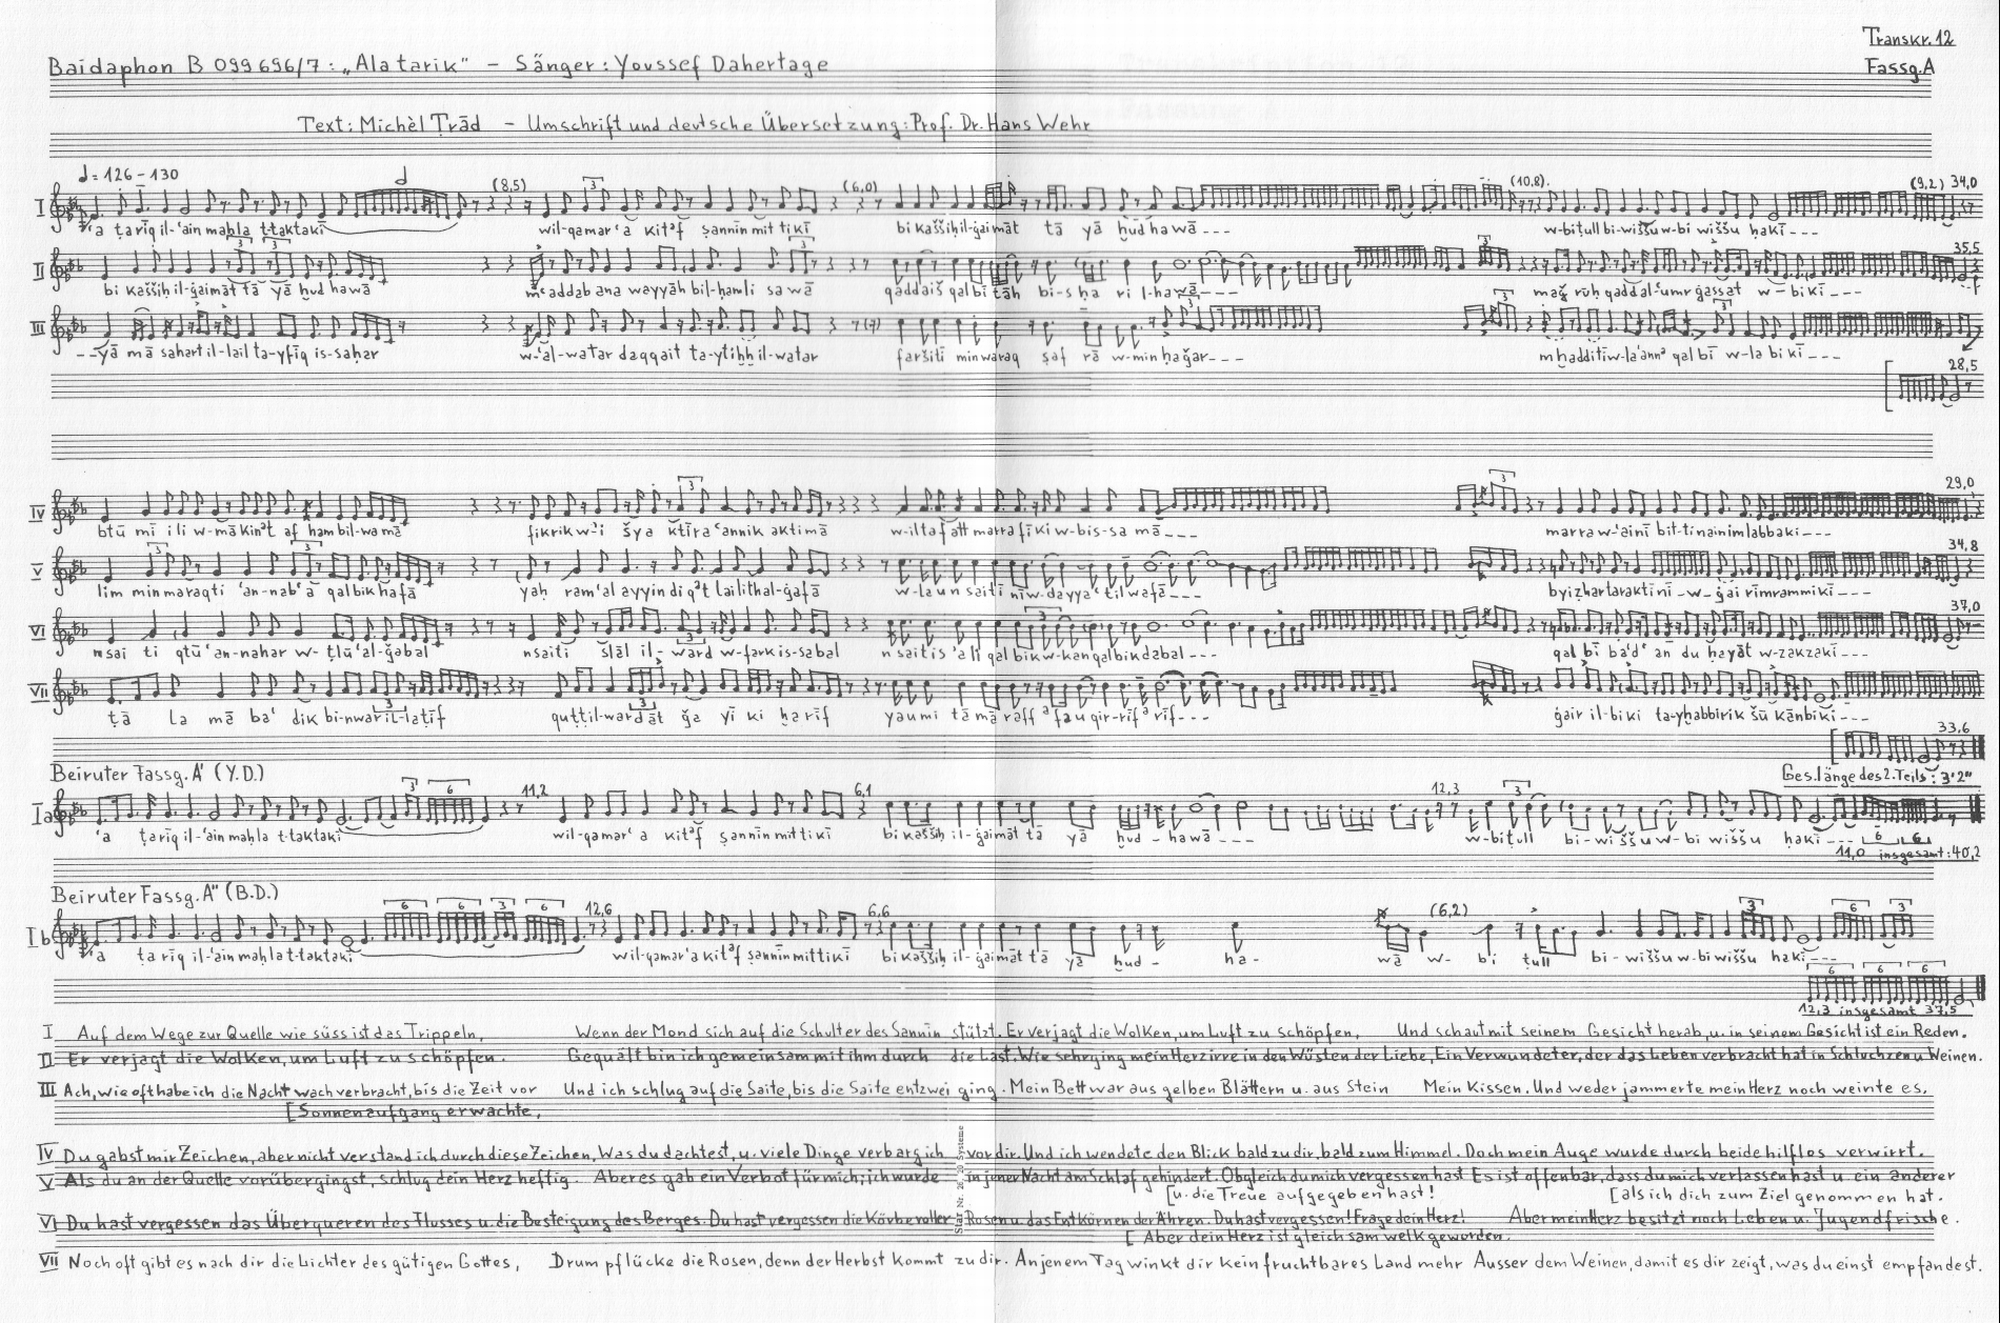 Transkr. 12
Baidaphon B 099696/7: „Ala tarik" – Sänger: Youssef Dahertage
Fassg. A
Text: Michèl Ṭrād – Umschrift und deutsche Übersetzung: Prof. Dr. Hans Wehr
= 126 – 130
(8,5) (6,0) (10,8). (9,2) 34,0
I
'a ṭarīq il-'ain maḥla t-taktaki wil-qamar 'a kitᵊf ṣannīn mittikī bi kaššiḥ il-ġaimāt tā yā ḫud hawā --- w-biṭull bi-wiššu w-bi wiššu ḥakī ---
35,5
II
bi kaššiḥ il-ġaimāt tā yā ḫud hawā m'addab ana wayyāh bil-ḥamli sawā qaddaiš qalbī tāh bi-s ḥa ri l-hawā --- rūḥ qaddal-'umr ġaṣṣat w-bikī ---
III
--yā mā sahart il-lail ta-yfīq is-saḥar w-'al-watar daqqait ta-ytiḫḫ il-watar faršitī min waraq ṣaf rā w-min ḥaǧar --- mḫadditī w-la'annᵊ qalbī w-la bikī ---
28,5
29,0
IV
btū mī ili w-mā kinᵊt af ham bil-wamā fikrik w-i šya ktīra 'annik aktimā w-iltafatt marra fīki w-bis-sa mā --- marra w-'ainī bit-tinainim labbaki ---
34,8
V
lim min maraqti 'an-nab'ā qalbik hafā yaḥ ram 'al ayyin diqᵊt lailit hal-ġafā w-laun saiti nī w-dayya'til wafā --- byiẓhar taraktinī - w - ġai rīm rammikī ---
37,0
VI
nsai ti qṭū 'an-nahar w- ṭlū 'al-ǧabal nsaiti šlāl il- ward w-fark is-sabal n saiti s'alī qalbik w-kan qalbik dabal --- qal bī ba'd' an du ḥayāt w-zakzakī ---
VII
tā la mā ba' dik bi-nwar il-laṭīf quṭṭil-wardāt ǧa yī ki ḫarīf yaumi tā mā raff ᵊfau qir-rīfᵊrīf --- ġair il-biki ta-yḫabbirik šū kān bikī ---
33,6
Beiruter Fassg. A' (Y.D.)
Ges.länge des 2. Teils: 3'2"
11,2 6,1 12,3
Ia
'a ṭarīq il-'ain maḥla t-taktakī wil-qamar 'a kitᵊf ṣannīn mittikī bi kaššiḥ il-ġaimāt tā yā ḫud - hawā --- w-biṭull bi-wiššu w-bi wiššu ḥakī ---
11,0 insgesamt: 40,2
Beiruter Fassg. A" (B.D.)
12,6 6,6 (6,2)
Ib
'a ṭa rīq il-'ain maḥla t-taktakī wil-qamar 'a kitᵊf ṣannīn mittikī bi kaššiḥ il-ġaimāt tā yā ḫud - ha - wā w- bi ṭull bi-wiššu w-bi wiššu ḥaki ---
12,3 insgesamt 37,5
I Auf dem Wege zur Quelle wie süss ist das Trippeln, Wenn der Mond sich auf die Schulter des Sannin stützt. Er verjagt die Wolken, um Luft zu schöpfen, Und schaut mit seinem Gesicht herab, u. in seinem Gesicht ist ein Reden.
II Er verjagt die Wolken, um Luft zu schöpfen. Gequält bin ich gemeinsam mit ihm durch die Last. Wie sehr ging mein Herz irre in den Wüsten der Liebe, Ein Verwundeter, der das Leben verbracht hat in Schluchzen u. Weinen.
III Ach, wie oft habe ich die Nacht wach verbracht, bis die Zeit vor Und ich schlug auf die Saite, bis die Saite entzwei ging. Mein Bett war aus gelben Blättern u. aus Stein Mein Kissen. Und weder jammerte mein Herz noch weinte es.
[Sonnenaufgang erwachte,
IV Du gabst mir Zeichen, aber nicht verstand ich durch diese Zeichen, Was du dachtest, u. viele Dinge verbarg ich vor dir. Und ich wendete den Blick bald zu dir, bald zum Himmel. Doch mein Auge wurde durch beide hilflos verwirrt.
V Als du an der Quelle vorübergingst, schlug dein Herz heftig. Aber es gab ein Verbot für mich; ich wurde in jener Nacht am Schlaf gehindert. Obgleich du mich vergessen hast Es ist offenbar, dass du mich verlassen hast u. ein anderer
[u. die Treue aufgegeben hast! [als ich dich zum Ziel genommen hat.
VI Du hast vergessen das Überqueren des Flusses u. die Besteigung des Berges. Du hast vergessen die Körbe voller Rosen u. das Entkörnen der Ähren. Du hast vergessen! Frage dein Herz! Aber mein Herz besitzt noch Leben u. Jugendfrische.
[Aber dein Herz ist gleichsam welk geworden.
VII Noch oft gibt es nach dir die Lichter des gütigen Gottes, Drum pflücke die Rosen, denn der Herbst kommt zu dir. An jenem Tag winkt dir kein fruchtbares Land mehr Ausser dem Weinen, damit es dir zeigt, was du einst empfandest.
Star Nr. 26 20 Systeme